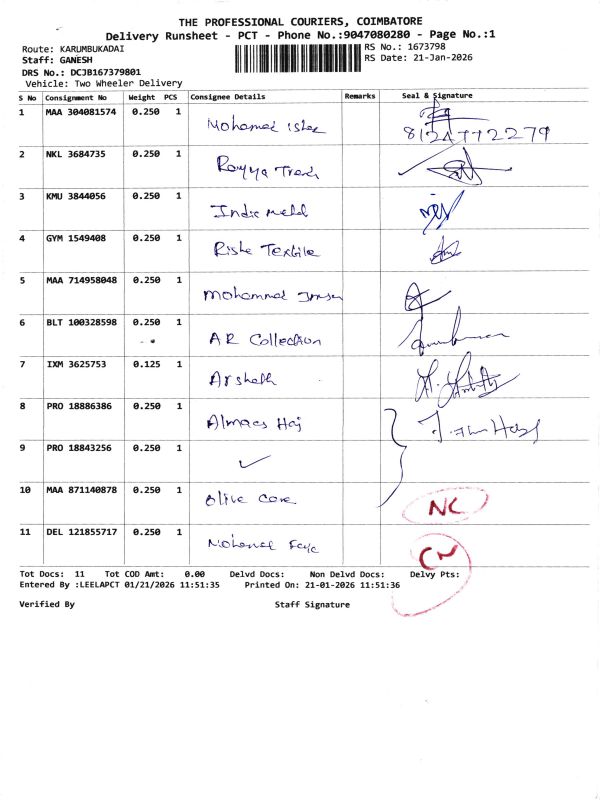 THE PROFESSIONAL COURIERS, COIMBATORE
Delivery Runsheet - PCT - Phone No.:9047080280 - Page No.:1
Route: KARUMBUKADAI RS No.: 1673798
Staff: GANESH RS Date: 21-Jan-2026
DRS No.: DCJB167379801
Vehicle: Two Wheeler Delivery
S No Consignment No Weight PCS Consignee Details Remarks Seal & Signature
1 MAA 304081574 0.250 1 Mohamed 8124772279
2 NKL 3684735 0.250 1
3 KMU 3844056 0.250 1
4 GYM 1549408 0.250 1 Textile
5 MAA 714958048 0.250 1 Mohammed
6 BLT 100328598 0.250 1 AR Collection
7 IXM 3625753 0.125 1 Arshath
8 PRO 18886386 0.250 1 Almaas Haj
9 PRO 18843256 0.250 1 ✓
10 MAA 871140878 0.250 1 Olive Care NC
11 DEL 121855717 0.250 1 CN
Tot Docs: 11 Tot COD Amt: 0.00 Delvd Docs: Non Delvd Docs: Delvy Pts:
Entered By :LEELAPCT 01/21/2026 11:51:35 Printed On: 21-01-2026 11:51:36
Verified By Staff Signature